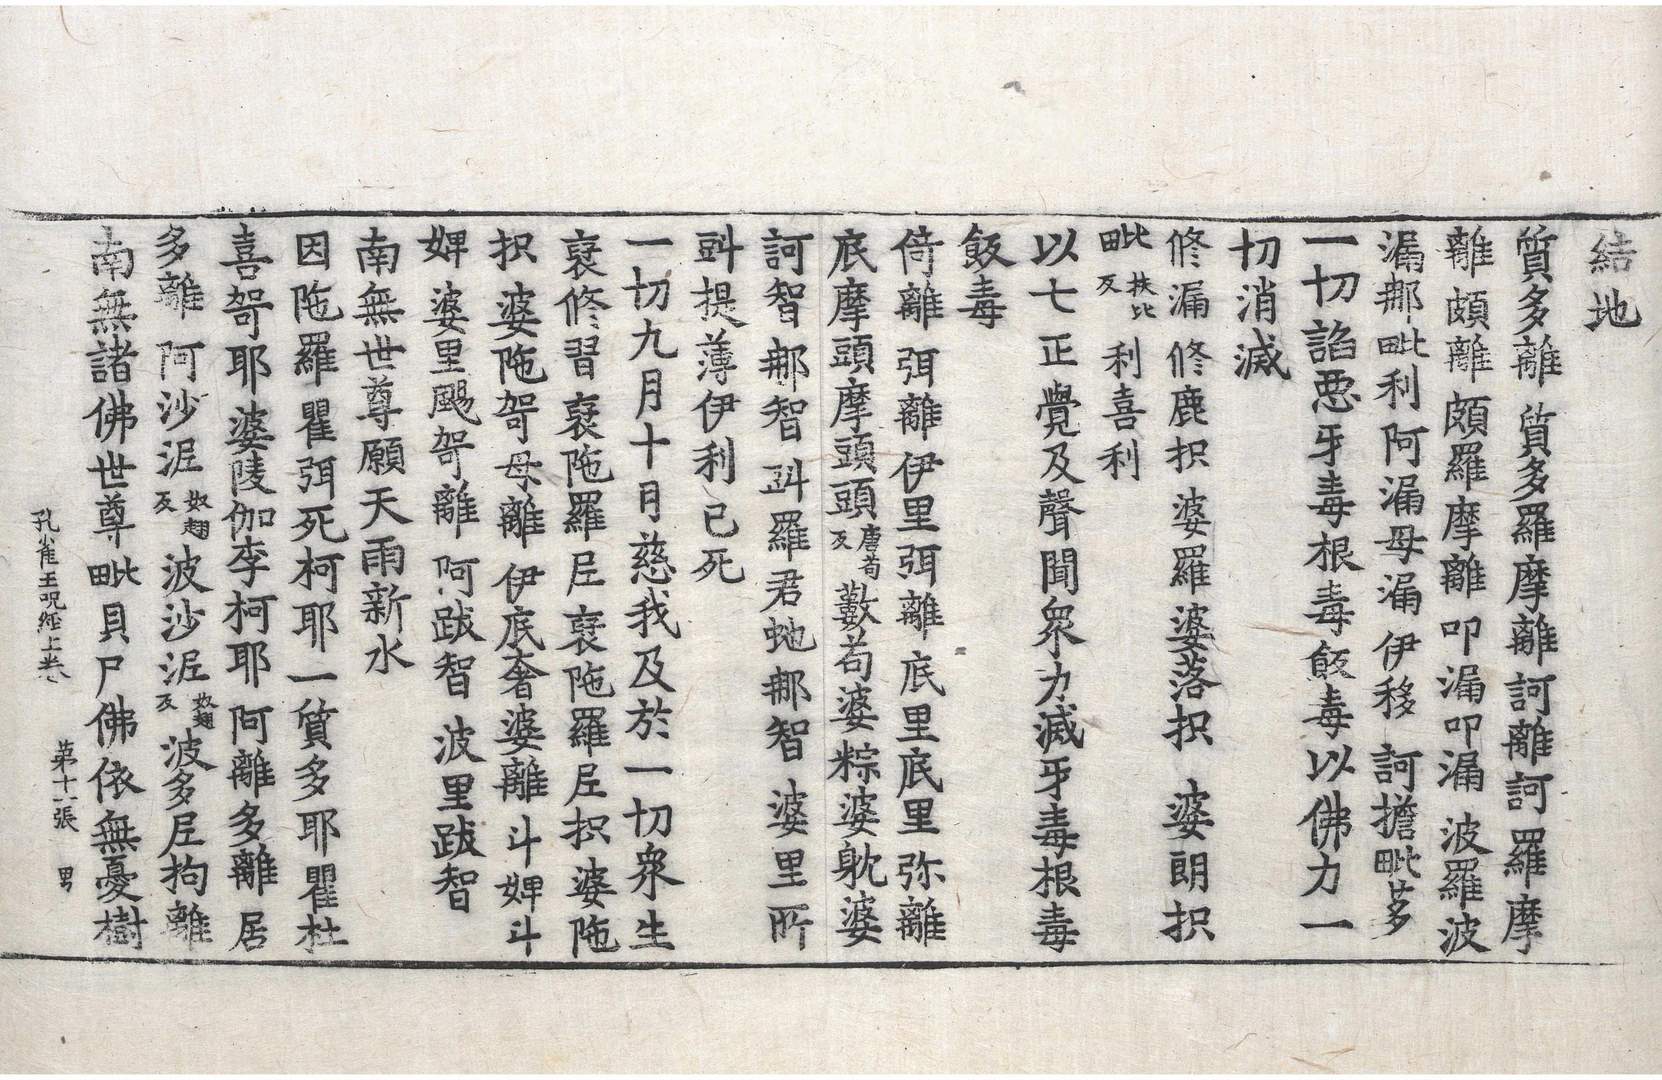 結地
質多離 質多羅摩離訶離訶羅摩
離頗離頗羅摩離叩漏叩漏波羅波
漏郍毗利阿漏母漏伊移 訶擔毗茤
一切諂惡牙毒根毒飯毒以佛力一
切消滅
修漏修鹿抧婆羅婆落抧 婆朗抧
毗扶比反 利喜利
以七正覺及聲聞衆力滅牙毒根毒
飯毒
倚離弭離伊里弭離底里底里弥離
底摩頭摩頭頭唐苟反藪苟婆粽婆躭婆
訶智郍智㪷羅君虵郍智 婆里所
㪷提薄伊利已死
一切九月十月慈我及於一切衆生
裒修習裒陁羅𡰱裒陁羅𡰱抧婆陁
抧婆陁哿母離伊底奢婆離斗婢斗
婢婆里颺哿離阿跋智波里跋智
南無世尊願天雨新水
因陁羅瞿弭死柯耶一質多耶瞿杜
喜哿耶婆陵伽李柯耶阿離多離居
多離阿沙泥奴翅反波沙泥奴翅反波多𡰱拘離
南無諸佛世尊毗貝尸佛依無憂樹
孔雀王呪經上卷 第十一張 男